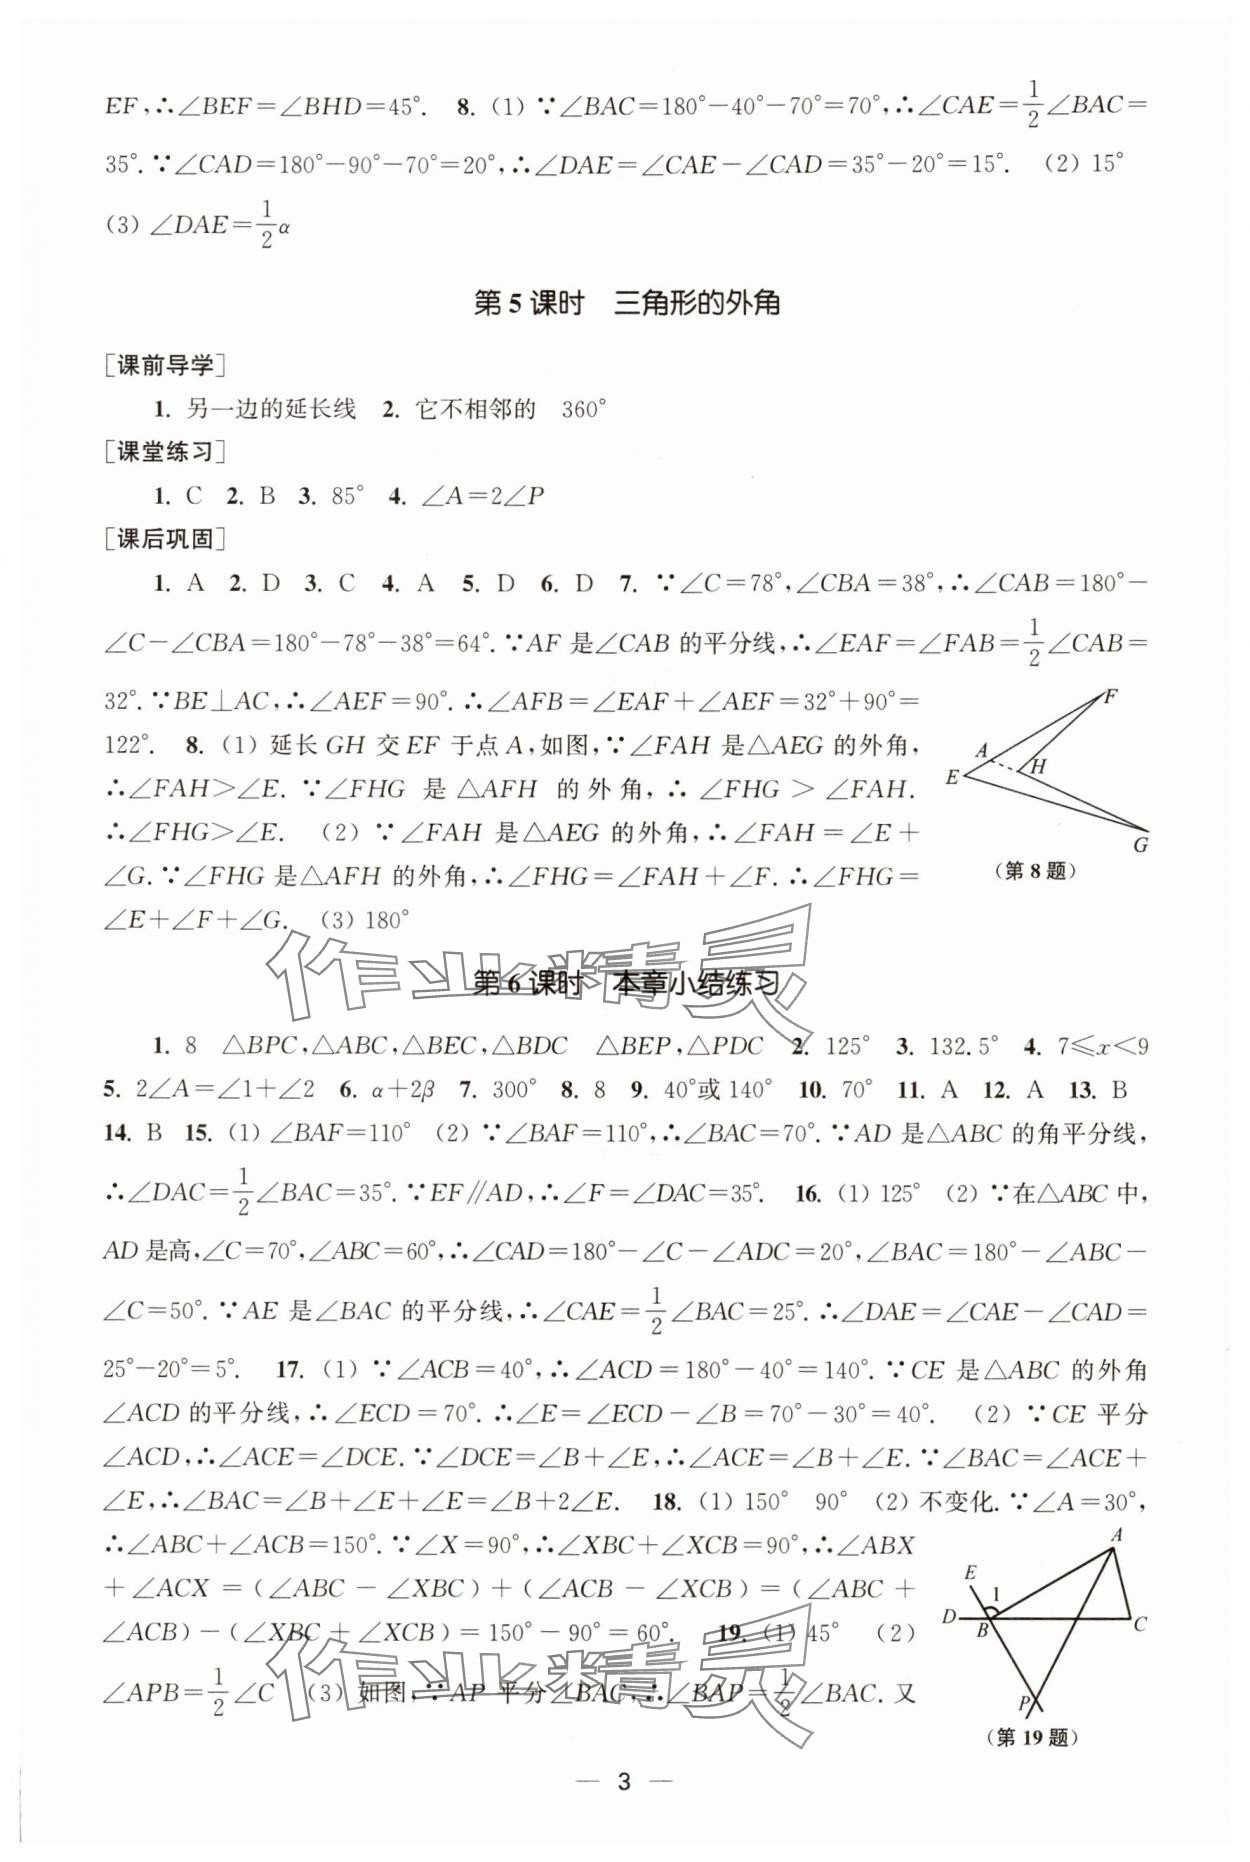 EF,∴∠BEF=∠BHD=45°. 8. (1) ∵∠BAC=180°-40°-70°=70°,∴∠CAE=1/2∠BAC=
35°.∵∠CAD=180°-90°-70°=20°,∴∠DAE=∠CAE-∠CAD=35°-20°=15°. (2) 15°
(3) ∠DAE=1/2α
第5课时 三角形的外角
[课前导学]
1. 另一边的延长线 2. 它不相邻的 360°
[课堂练习]
1. C 2. B 3. 85° 4. ∠A=2∠P
[课后巩固]
1. A 2. D 3. C 4. A 5. D 6. D 7. ∵∠C=78°,∠CBA=38°,∴∠CAB=180°-
∠C-∠CBA=180°-78°-38°=64°.∵AF是∠CAB的平分线,∴∠EAF=∠FAB=1/2∠CAB=
32°.∵BE⊥AC,∴∠AEF=90°.∴∠AFB=∠EAF+∠AEF=32°+90°=
122°. 8. (1) 延长GH交EF于点A,如图,∵∠FAH是△AEG的外角,
∴∠FAH>∠E.∵∠FHG是△AFH的外角,∴∠FHG>∠FAH.
∴∠FHG>∠E. (2) ∵∠FAH是△AEG的外角,∴∠FAH=∠E+
∠G.∵∠FHG是△AFH的外角,∴∠FHG=∠FAH+∠F.∴∠FHG=
∠E+∠F+∠G. (3) 180°
F
A
H
E
G
(第8题)
作业精灵
第6课时 本章小结练习
1. 8 △BPC,△ABC,△BEC,△BDC △BEP,△PDC 2. 125° 3. 132.5° 4. 7≤x<9
5. 2∠A=∠1+∠2 6. α+2β 7. 300° 8. 8 9. 40°或140° 10. 70° 11. A 12. A 13. B
14. B 15. (1) ∠BAF=110° (2) ∵∠BAF=110°,∴∠BAC=70°.∵AD是△ABC的角平分线,
∴∠DAC=1/2∠BAC=35°.∵EF∥AD,∴∠F=∠DAC=35°. 16. (1) 125° (2) ∵在△ABC中,
AD是高,∠C=70°,∠ABC=60°,∴∠CAD=180°-∠C-∠ADC=20°,∠BAC=180°-∠ABC-
∠C=50°.∵AE是∠BAC的平分线,∴∠CAE=1/2∠BAC=25°.∴∠DAE=∠CAE-∠CAD=
25°-20°=5°. 17. (1) ∵∠ACB=40°,∴∠ACD=180°-40°=140°.∵CE是△ABC的外角
∠ACD的平分线,∴∠ECD=70°.∴∠E=∠ECD-∠B=70°-30°=40°. (2) ∵CE平分
∠ACD,∴∠ACE=∠DCE.∵∠DCE=∠B+∠E,∴∠ACE=∠B+∠E.∵∠BAC=∠ACE+
∠E,∴∠BAC=∠B+∠E+∠E=∠B+2∠E. 18. (1) 150° 90° (2) 不变化.∵∠A=30°,
∴∠ABC+∠ACB=150°.∵∠X=90°,∴∠XBC+∠XCB=90°,∴∠ABX
+∠ACX=(∠ABC-∠XBC)+(∠ACB-∠XCB)=(∠ABC+
∠ACB)-(∠XBC+∠XCB)=150°-90°=60°. 19. (1) 45° (2)
∠APB=1/2∠C (3) 如图,∵AP平分∠BAC,∴∠BAP=1/2∠BAC.又
A
E
1
D
B
C
P
(第19题)
作业精灵
— 3 —